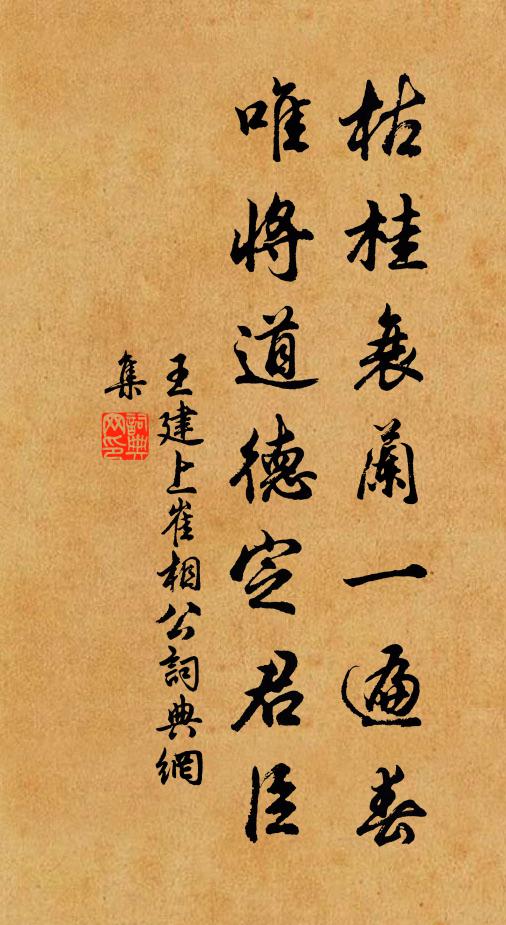 枯桂衰蘭一遍春
唯將道德定君臣
王建上崔相公詞典網
集
詞典網印